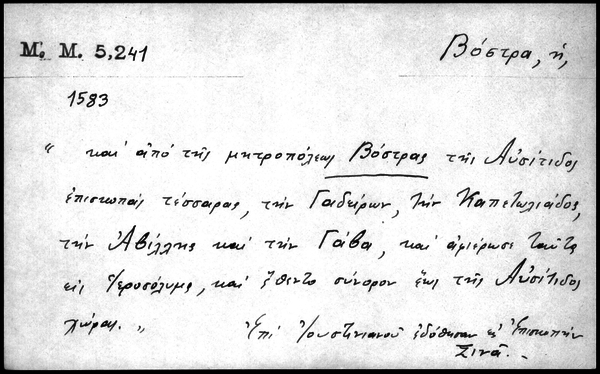 Μ. Μ. 5,241
Βόστρα, ἡ,
1583
“ καὶ ἀπὸ τῆς μητροπόλεως Βόστρας τῆς Αὐσίτιδος
ἐπισκοπὰς τέσσαρας, τὴν Γαδείρων, τὴν Καπετωλιάδος,
τὴν Ἀβίλλης καὶ τὴν Γάβα, καὶ ἀφιέρωσε ταῦτα
εἰς Ἱεροσόλυμα, καὶ ἔθεντο σύνορον ἕως τῆς Αὐσίτιδος
χώρας. „
Ἐπὶ Ἰουστινιανοῦ ἐδόθησαν εἰς Ἐπισκοπὴν
Σινᾶ. -